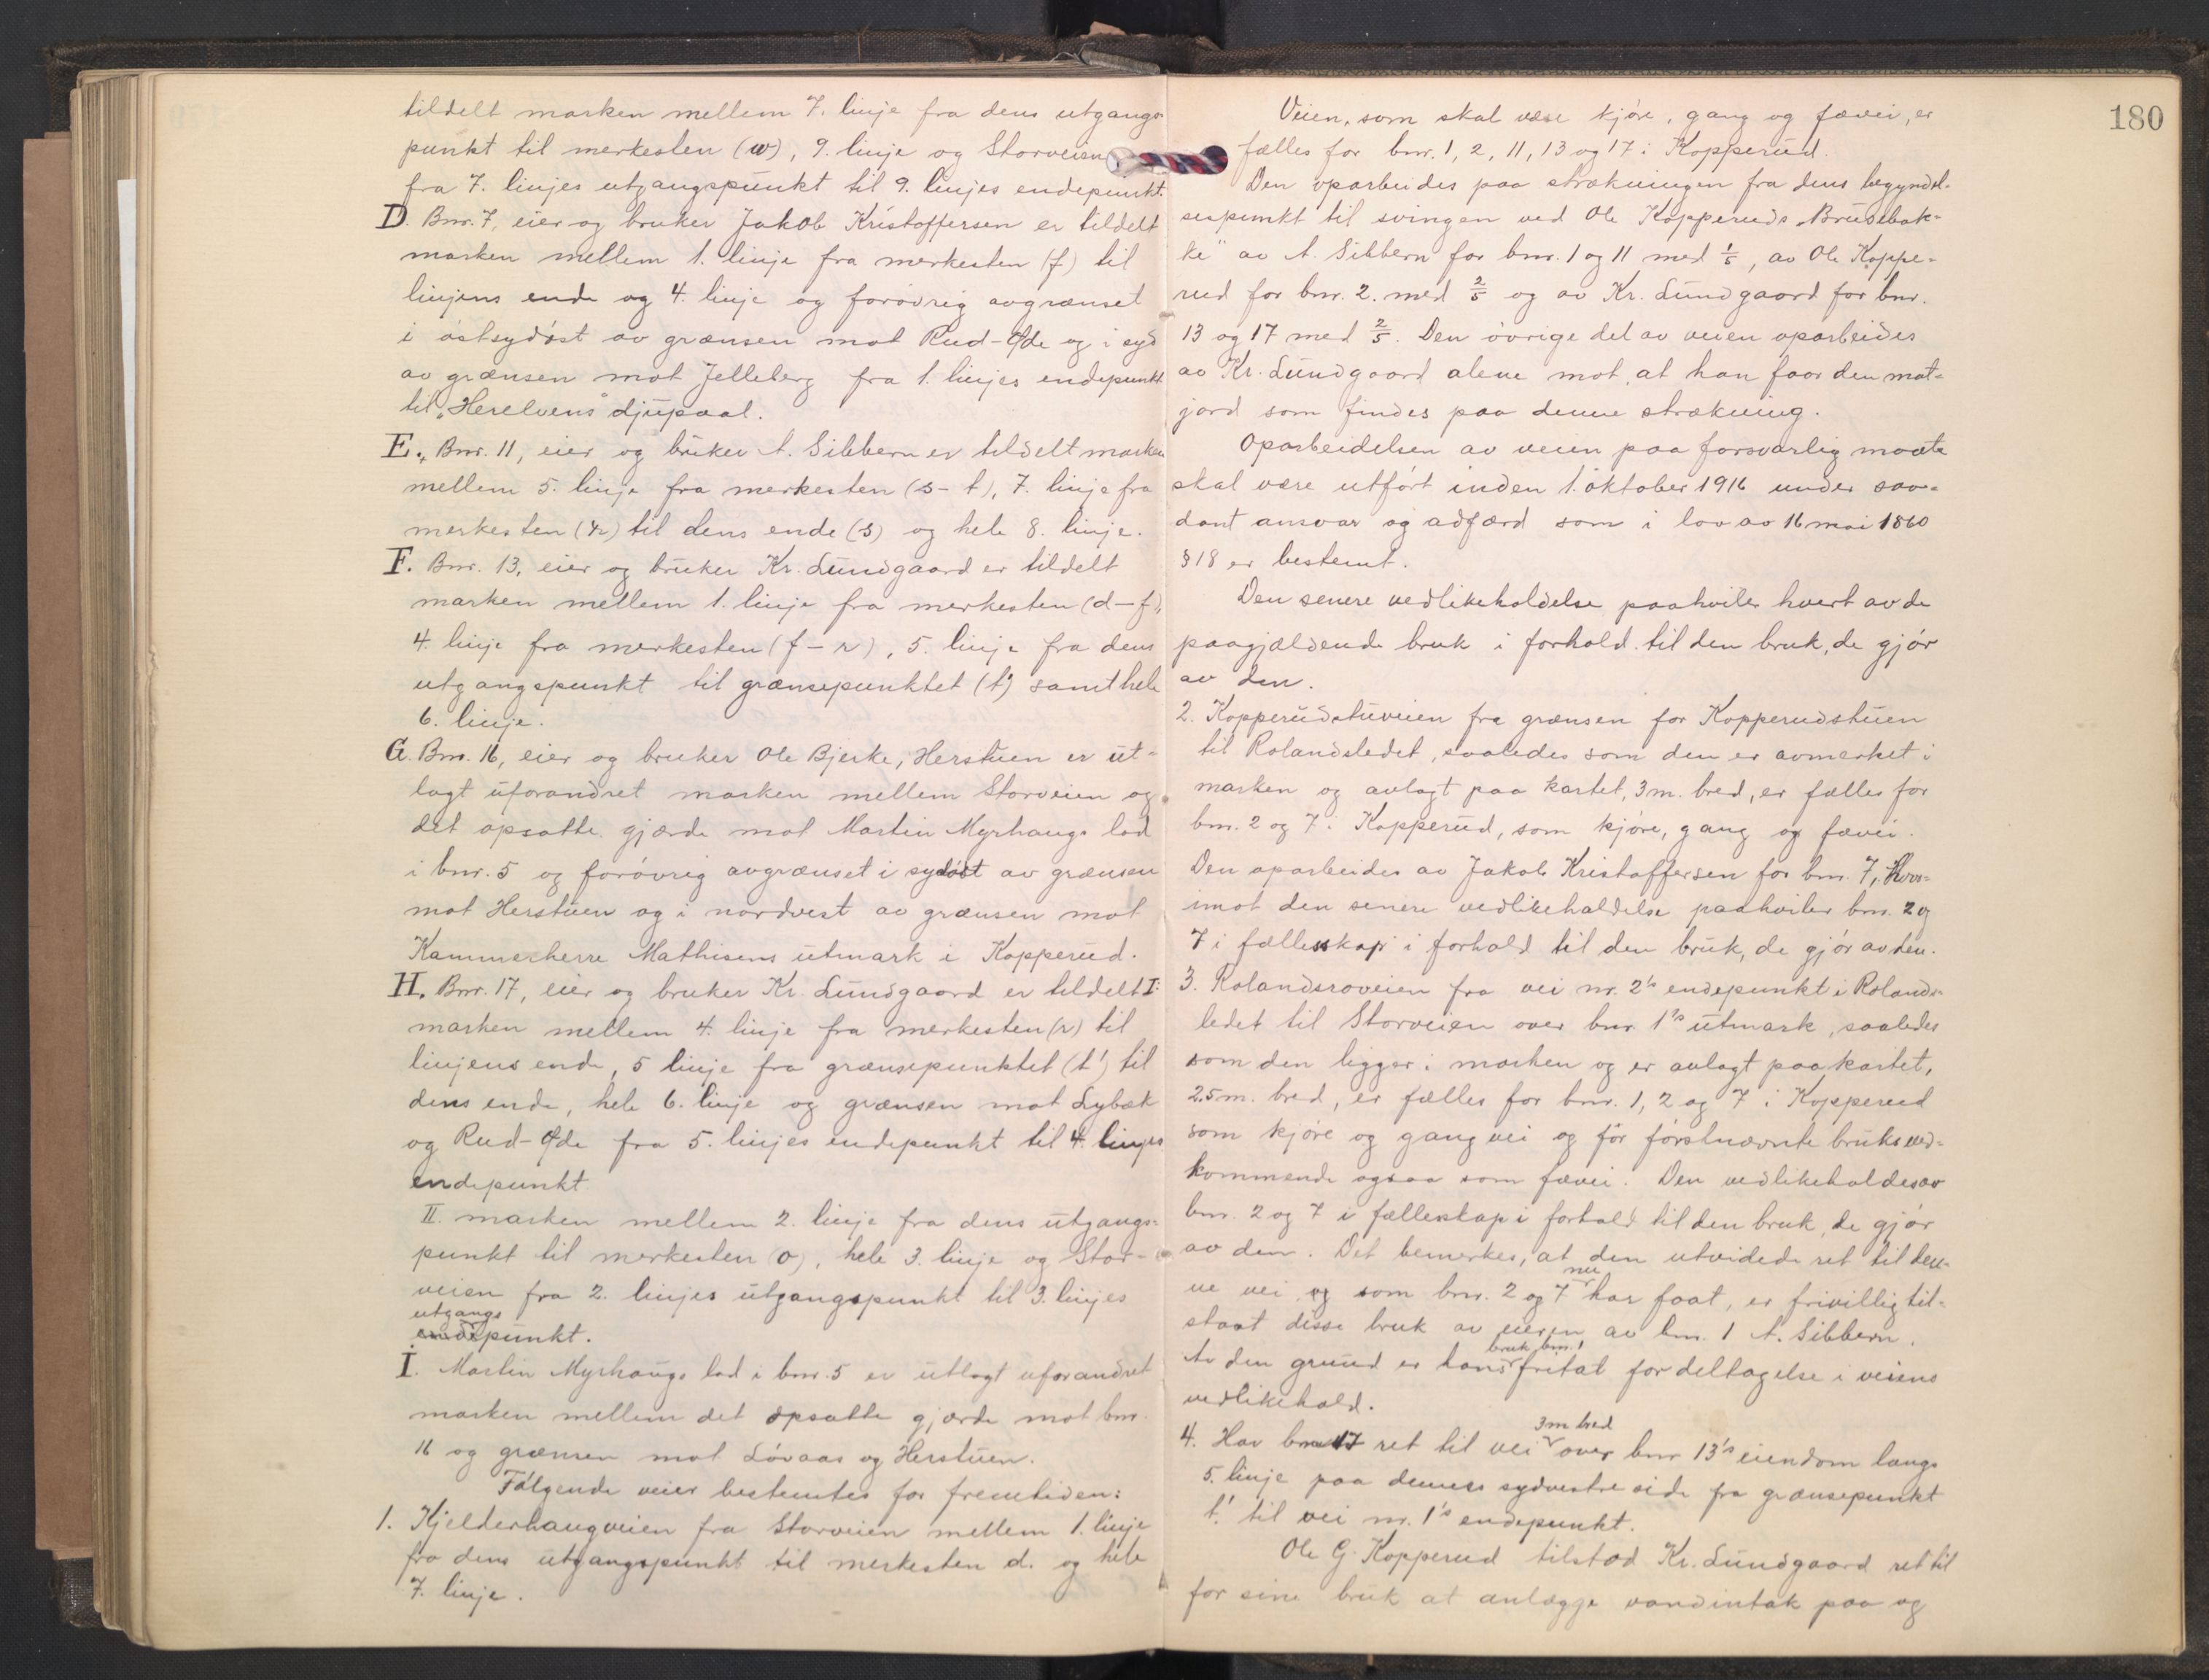 tildelt marken mellem 7. linje fra dens utgangs-
punkt til merkesten (w), 9. linje og Storveien
fra 7. linjes utgangspunkt til 9. linjes endepunkt.
D. Bnr. 7, eier og bruker Jakob Kristoffersen er tildelt
marken mellem 1. linje fra merkesten (f) til
linjens ende og 4. linje og forøvrig avgrænset
i østsydøst av grænsen mot Rud-Øde og i syd
av grænsen mot Jelleberg fra 1. linjes endepunkt
til „Herelvens" djupaal.
E. Bnr. 11, eier og bruker A. Sibbern er tildelt marken
mellem 5. linje fra merkesten (s-t), 7. linje fra
merkesten (n) til dens ende (s) og hele 8. linje.
F. Bnr. 13, eier og bruker Kr. Lundgaard er tildelt
marken mellem 1. linje fra merkesten (d-f),
4. linje fra merkesten (f-r), 5. linje fra dens
utgangspunkt til grænsepunktet (t') samt hele
6. linje.
G. Bnr. 16, eier og bruker Ole Bjerke, Herstuen er ut-
lagt uforandret marken mellem Storveien og
det opsatte gjærde mot Martin Myrhaugs lod
i bnr. 5 og forøvrig avgrænset i sydøst av grænsen
mot Herstuen og i nordvest av grænsen mot
Kammerherre Mathisens utmark i Kopperud.
H. Bnr. 17, eier og bruker Kr. Lundgaard er tildelt I:
marken mellem 4. linje fra merkesten (r) til
linjens ende, 5 linje fra grænsepunktet (t') til
dens ende, hele 6. linje og grænsen mot Lybæk
og Rud-Øde fra 5. linjes endepunkt til 4. linjes
endepunkt.
II. marken mellem 2. linje fra dens utgangs-
punkt til merkesten (o), hele 3. linje og Stor-
veien fra 2. linjes utgangspunkt til 3. linjes
utgangs
endepunkt.
I. Martin Myrhaugs lod i bnr. 5 er utlagt uforandret
marken mellem det opsatte gjærde mot bnr.
16 og grænsen mot Løvaas og Herstuen.
Følgende veier bestemtes for fremtiden:
1. Kjelderhaugveien fra Storveien mellem 1. linje
fra dens utgangspunkt til merkesten d. og hele
7. linje.
180
Veien, som skal være kjøre, gang og fævei, er
fælles for bnr. 1, 2, 11, 13 og 17 i Kopperud.
Den oparbeides paa strækningen fra dens begyndel-
sespunkt til svingen ved Ole Kopperuds „Brusebak-
ke" av A. Sibbern for bnr. 1 og 11 med 1/5, av Ole Koppe-
rud for bnr. 2. med 2/5 og av Kr. Lundgaard for bnr.
13 og 17 med 2/5. Den øvrige del av veien oparbeides
av Kr. Lundgaard alene mot, at han faar den mat-
jord som findes paa denne strækning.
Oparbeidelsen av veien paa forsvarlig maate
skal være utført inden 1. oktober 1916 under saa-
dant ansvar og adfærd som i lov av 16 mai 1860
§ 18 er bestemt.
Den senere vedlikeholdelse paahviler hvert av de
paagjældende bruk i forhold til den bruk, de gjør
av den.
2. Kopperudstuveien fra grænsen for Kopperudstuen
til Rolandsledet, saaledes som den er avmerket i
marken og avlagt paa kartet, 3 m. bred, er fælles for
bnr. 2 og 7 i Kopperud, som kjøre, gang og fævei.
Den oparbeides av Jakob Kristoffersen for bnr. 7, hvor-
imot den senere vedlikeholdelse paahviler bnr. 2 og
7 i fællesskap i forhold til den bruk, de gjør av den.
3. Rolandsroveien fra vei nr. 2's endepunkt i Rolands-
ledet til Storveien over bnr. 1's utmark, saaledes
som den ligger i marken og er avlagt paa kartet,
2.5 m. bred, er fælles for bnr. 1, 2 og 7 i Kopperud
som kjøre og gangvei og for førstnævnte bruks ved-
kommende ogsaa som fævei. Den vedlikeholdes av
bnr. 2 og 7 i fælleskap i forhold til den bruk, de gjør
av den. Det bemerkes, at den utvidede ret til den-
nu
ne vei, og som bnr. 2 og 7 har faat, er frivillig til-
staat disse bruk av eieren av bnr. 1 A. Sibbern.
bruk bnr. 1
Av den grund er hans fritat for deltagelse i veiens
vedlikehold.
3 m bred
4. Har bnr 17 ret til vei over bnr 13's eiendom langs
5. linje paa dennes sydvestre side fra grænsepunkt
t'. til vei nr. 1's endepunkt.
Ole G. Kopperud tilstod Kr. Lundgaard ret til
for sine bruk at anlægge vandintak paa og